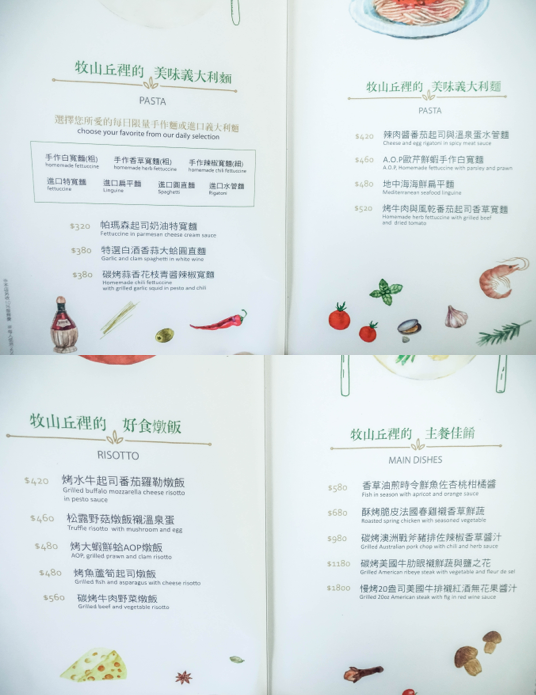 牧山丘裡的 美味義大利麵
PASTA
選擇您所愛的每日限量手作麵或進口義大利麵
choose your favorite from our daily selection
手作白寬麵(粗) 手作香草寬麵(粗) 手作辣椒寬麵(粗)
homemade fettuccine homemade herb fettuccine homemade chili fettuccine
進口特寬麵 進口扁平麵 進口圓直麵 進口水管麵
fettuccine Linguine Spaghetti Rigatoni
$320 帕瑪森起司奶油特寬麵
Fettuccine in parmesan cheese cream sauce
$380 特選白酒香蒜大蛤圓直麵
Garlic and clam spaghetti in white wine
$380 碳烤蒜香花枝青醬辣椒寬麵
Homemade chili fettuccine
with grilled garlic squid in pesto and chili
牧山丘裡的 美味義大利麵
PASTA
$420 辣肉醬番茄起司與溫泉蛋水管麵
Cheese and egg rigatoni in spicy meat sauce
$460 A.O.P歐芹鮮蝦手作白寬麵
A.O.P. Homemade fettuccine with parsley and prawn
$480 地中海海鮮扁平麵
Mediterranean seafood linguine
$520 烤牛肉與風乾番茄起司香草寬麵
Homemade herb fettuccine with grilled beef
and dried tomato
牧山丘裡的 好食燉飯
RISOTTO
$420 烤水牛起司番茄羅勒燉飯
Grilled buffalo mozzarella cheese risotto
in pesto sauce
$460 松露野菇燉飯襯溫泉蛋
Truffle risotto with mushroom and egg
$480 烤大蝦鮮蛤AOP燉飯
AOP, grilled prawn and clam risotto
$480 烤魚蘆筍起司燉飯
Grilled fish and asparagus with cheese risotto
$560 碳烤牛肉野菜燉飯
Grilled beef and vegetable risotto
牧山丘裡的 主餐佳餚
MAIN DISHES
$580 香草油煎時令鮮魚佐杏桃柑橘醬
Fish in season with apricot and orange sauce
$680 酥烤脆皮法國春雞襯香草鮮蔬
Roasted spring chicken with seasoned vegetable
$980 碳烤澳洲戰斧豬排佐辣椒香草醬汁
Grilled Australian pork chop with chili and herb sauce
$1180 碳烤美國牛肋眼襯鮮蔬與鹽之花
Grilled American ribeye steak with vegetable and fleur de sel
$1800 慢烤20盎司美國牛排襯紅酒無花果醬汁
Grilled 20oz American steak with fig in red wine sauce